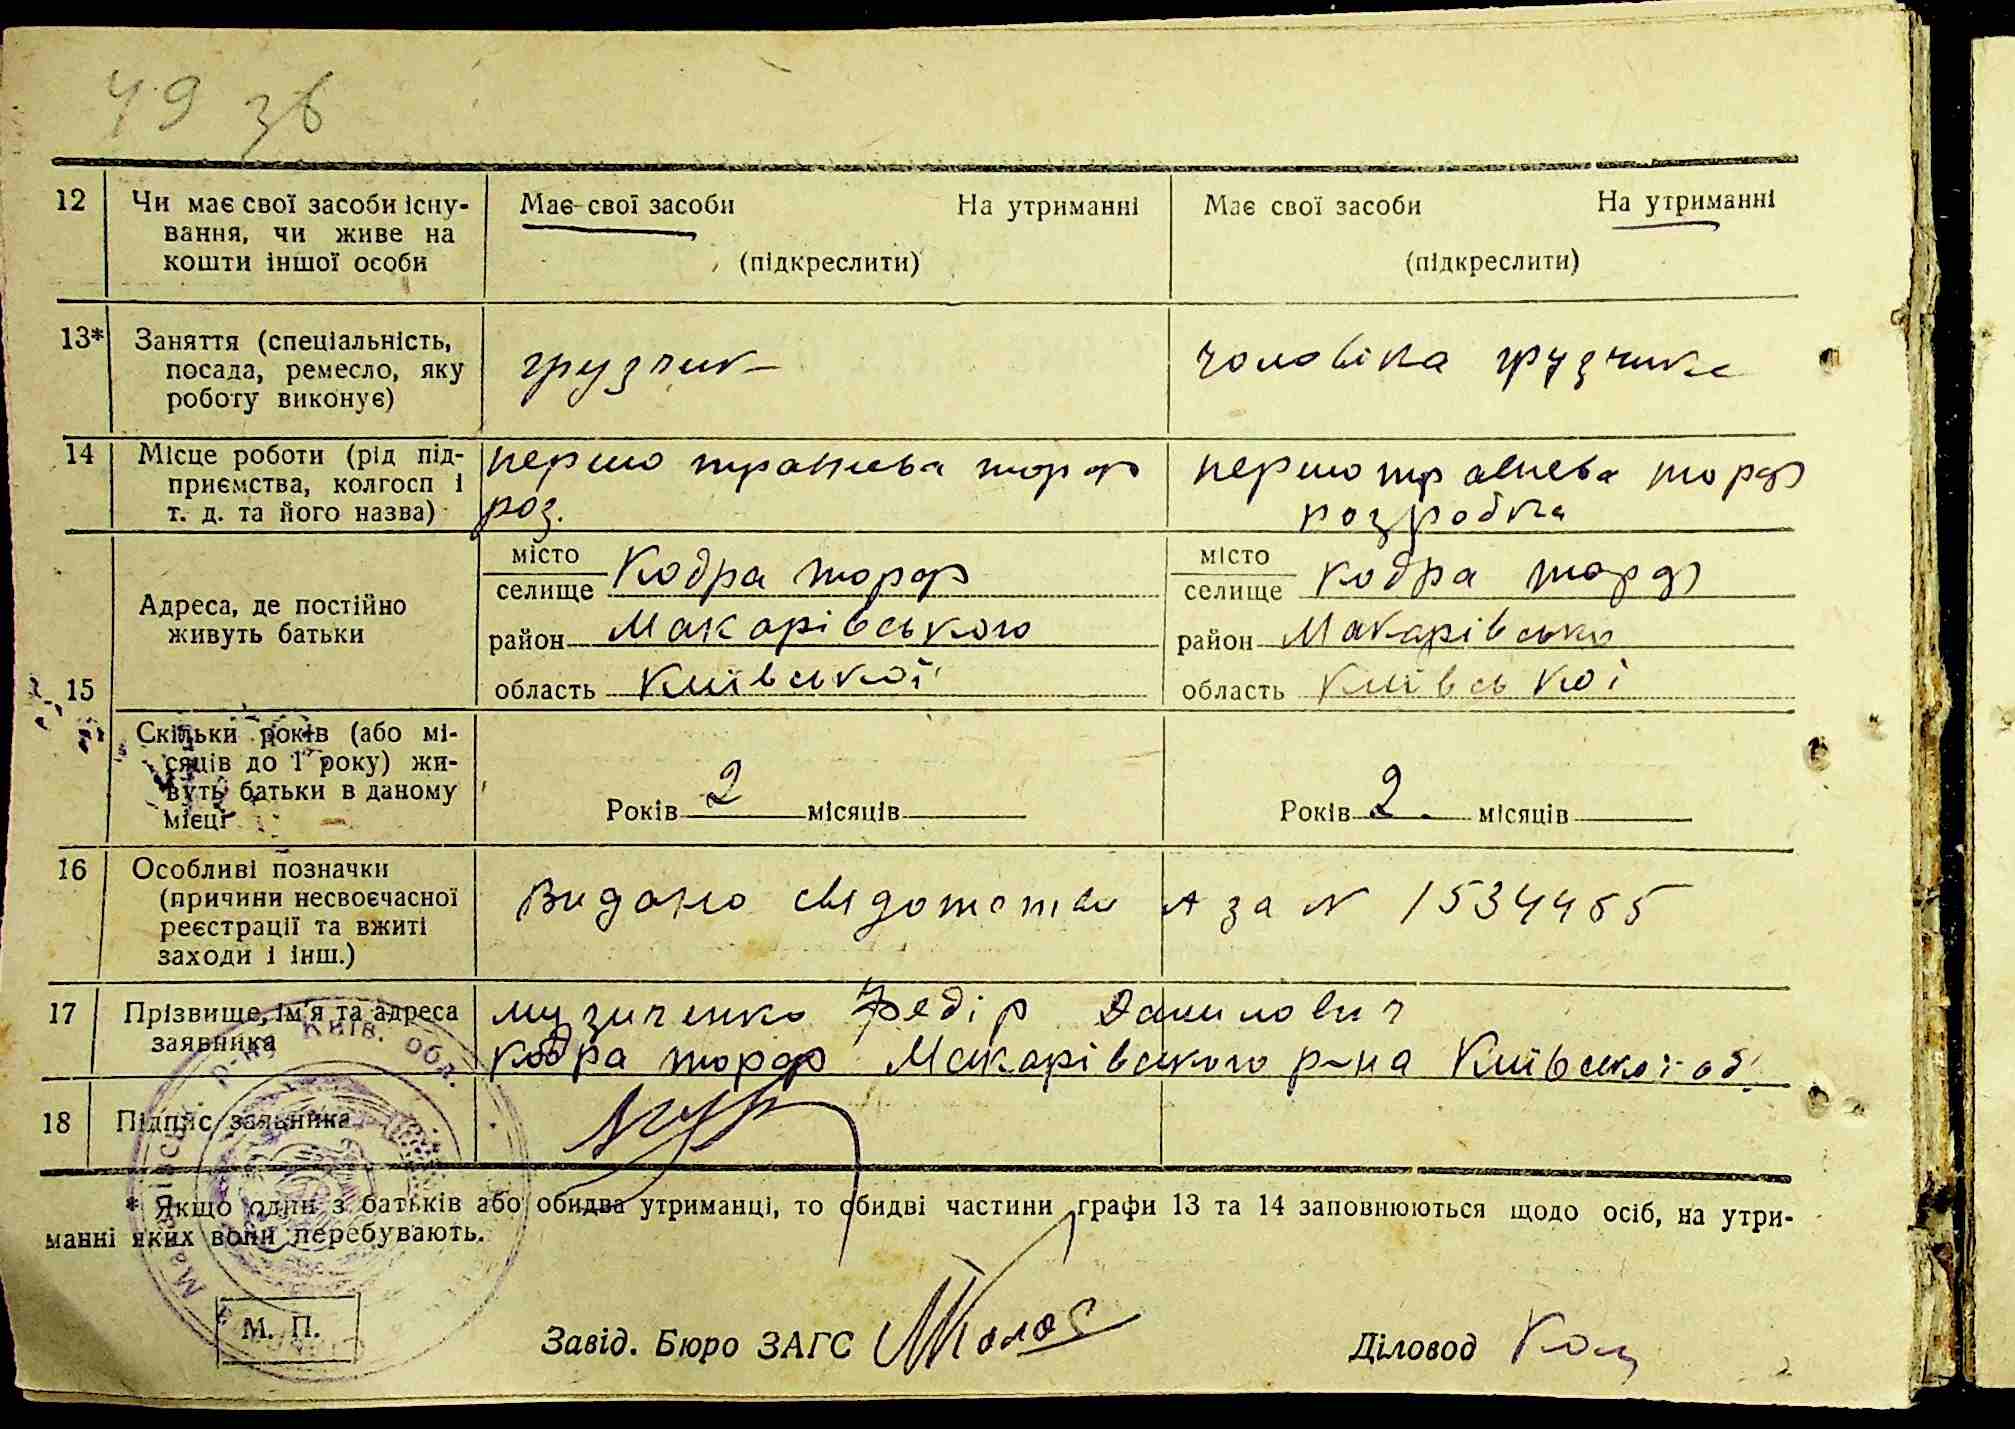 49 зв
12 Чи має свої засоби існу- Має свої засоби На утриманні Має свої засоби На утриманні
вання, чи живе на
кошти іншої особи (підкреслити) (підкреслити)
13* Заняття (спеціальність,
посада, ремесло, яку грузчик чоловіка грузчика
роботу виконує)
14 Місце роботи (рід під- першо травнева торф першотравнева торф
приємства, колгосп і
т. д. та його назва) роз. розробка
місто місто
селище Кодра торф селище Кодра торф
Адреса, де постійно
живуть батьки район Макарівського район Макарівсько
15 область Київської область Київської
Скільки років (або мі-
сяців до 1 року) жи-
вуть батьки в даному
місці Років 2 місяців Років 2 місяців
16 Особливі позначки
(причини несвоєчасної Видано свідотство А за N 1534455
реєстрації та вжиті
заходи і інш.)
17 Прізвище, ім'я та адреса Музиченко Федір Данилович
заявника Кодра торф Макарівського р-на Київської об.
18 Підпис заявника
* Якщо один з батьків або обидва утриманці, то обидві частини графи 13 та 14 заповнюються щодо осіб, на утри-
манні яких вони перебувають.
р-ну Київ. обл.
М. П. Завід. Бюро ЗАГС Діловод Коц